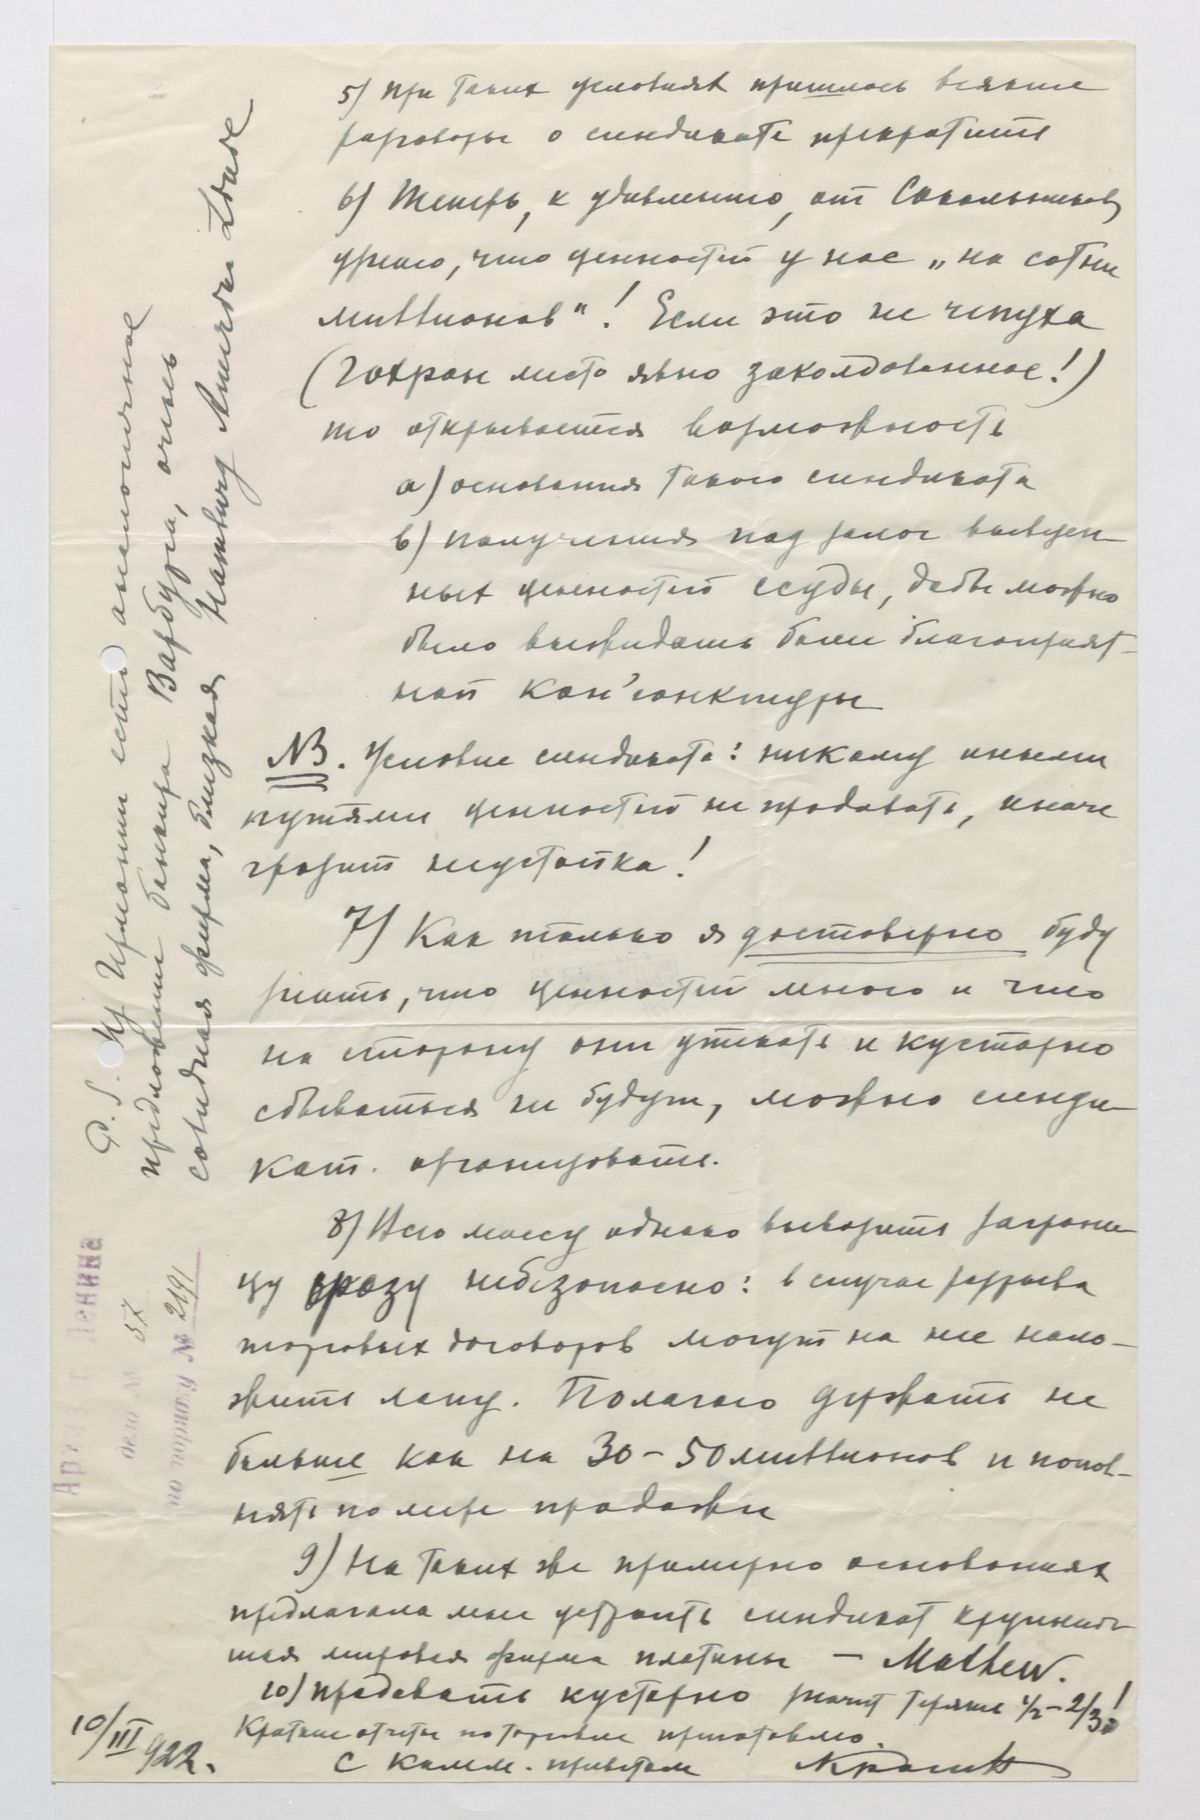 5) При таких условиях пришлось всякие
разговоры о синдикате прекратить
6) Теперь, к удивлению, от Сокольникова
узнаю, что ценностей у нас „на сотни
миллионов"! Если это не чепуха
(Гохран место явно заколдованное!)
то открывается возможность
а) основания такого синдиката
в) получения под залог вывезен-
ных ценностей ссуды, дабы можно
было выжидать более благоприят-
ной кон'юнктуры
NB. Условие синдиката: никому иными
путями ценностей не продавать, иначе
грозит неустойка!
7) Как только я достоверно буду
знать, что ценностей много и что
на сторону они утекать и кустарно
сбываться не будут, можно синди-
кат организовать.
8) Всю массу однако вывозить заграни-
цу сразу небезопасно: в случае разрыва
торговых договоров могут на нее нало-
жить лапу. Полагаю держать не
больше как на 30-50 миллионов и попол-
нять по мере продажи
9) На таких же примерно основаниях
предлагала мне устроить синдикат крупней-
шая мировая фирма платины - Mathew.
10) Продавать кустарно значит терять 1/2-2/3!
Краткие отчеты по торговле приготовлю.
С комм. приветом Красин
10/III 922.
P.S. Из Германии есть аналогичное
предложение банкира Варбурга, очень
солидная фирма, близкая Hamburg Amerika Linie
Архив т. Ленина
дело № 57
по порядку № 2191